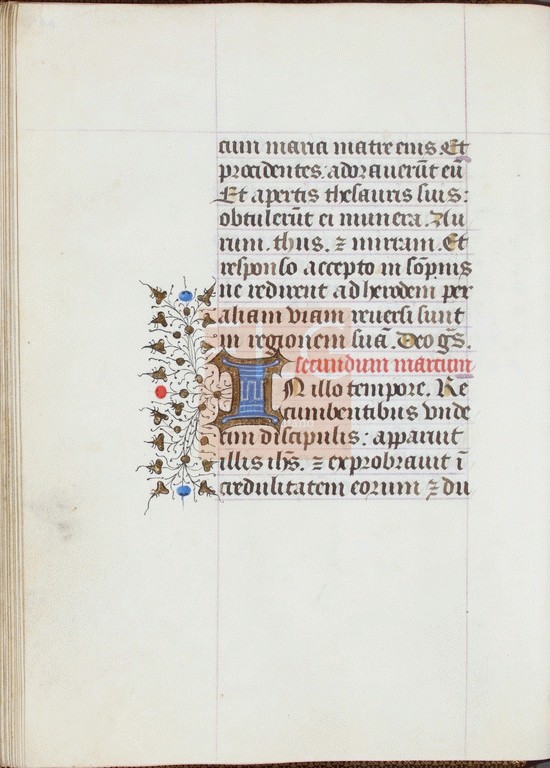 cum maria matre eius. Et
procidentes. adorauerūt eū
Et apertis thesauris suis:
obtulerūt ei munera. Au
rum. thus. ⁊ mirram. Et
responso accepto in sōpnis
ne redirent ad herodem per
aliam viam reuersi sunt
in regionem suā. Deo gs̄.
secundum marcum
IN illo tempore. Re
cumbentibus vnde
cim discipulis: apparuit
illis ihs̄. ⁊ exprobrauit ī
credulitatem eorum ⁊ du